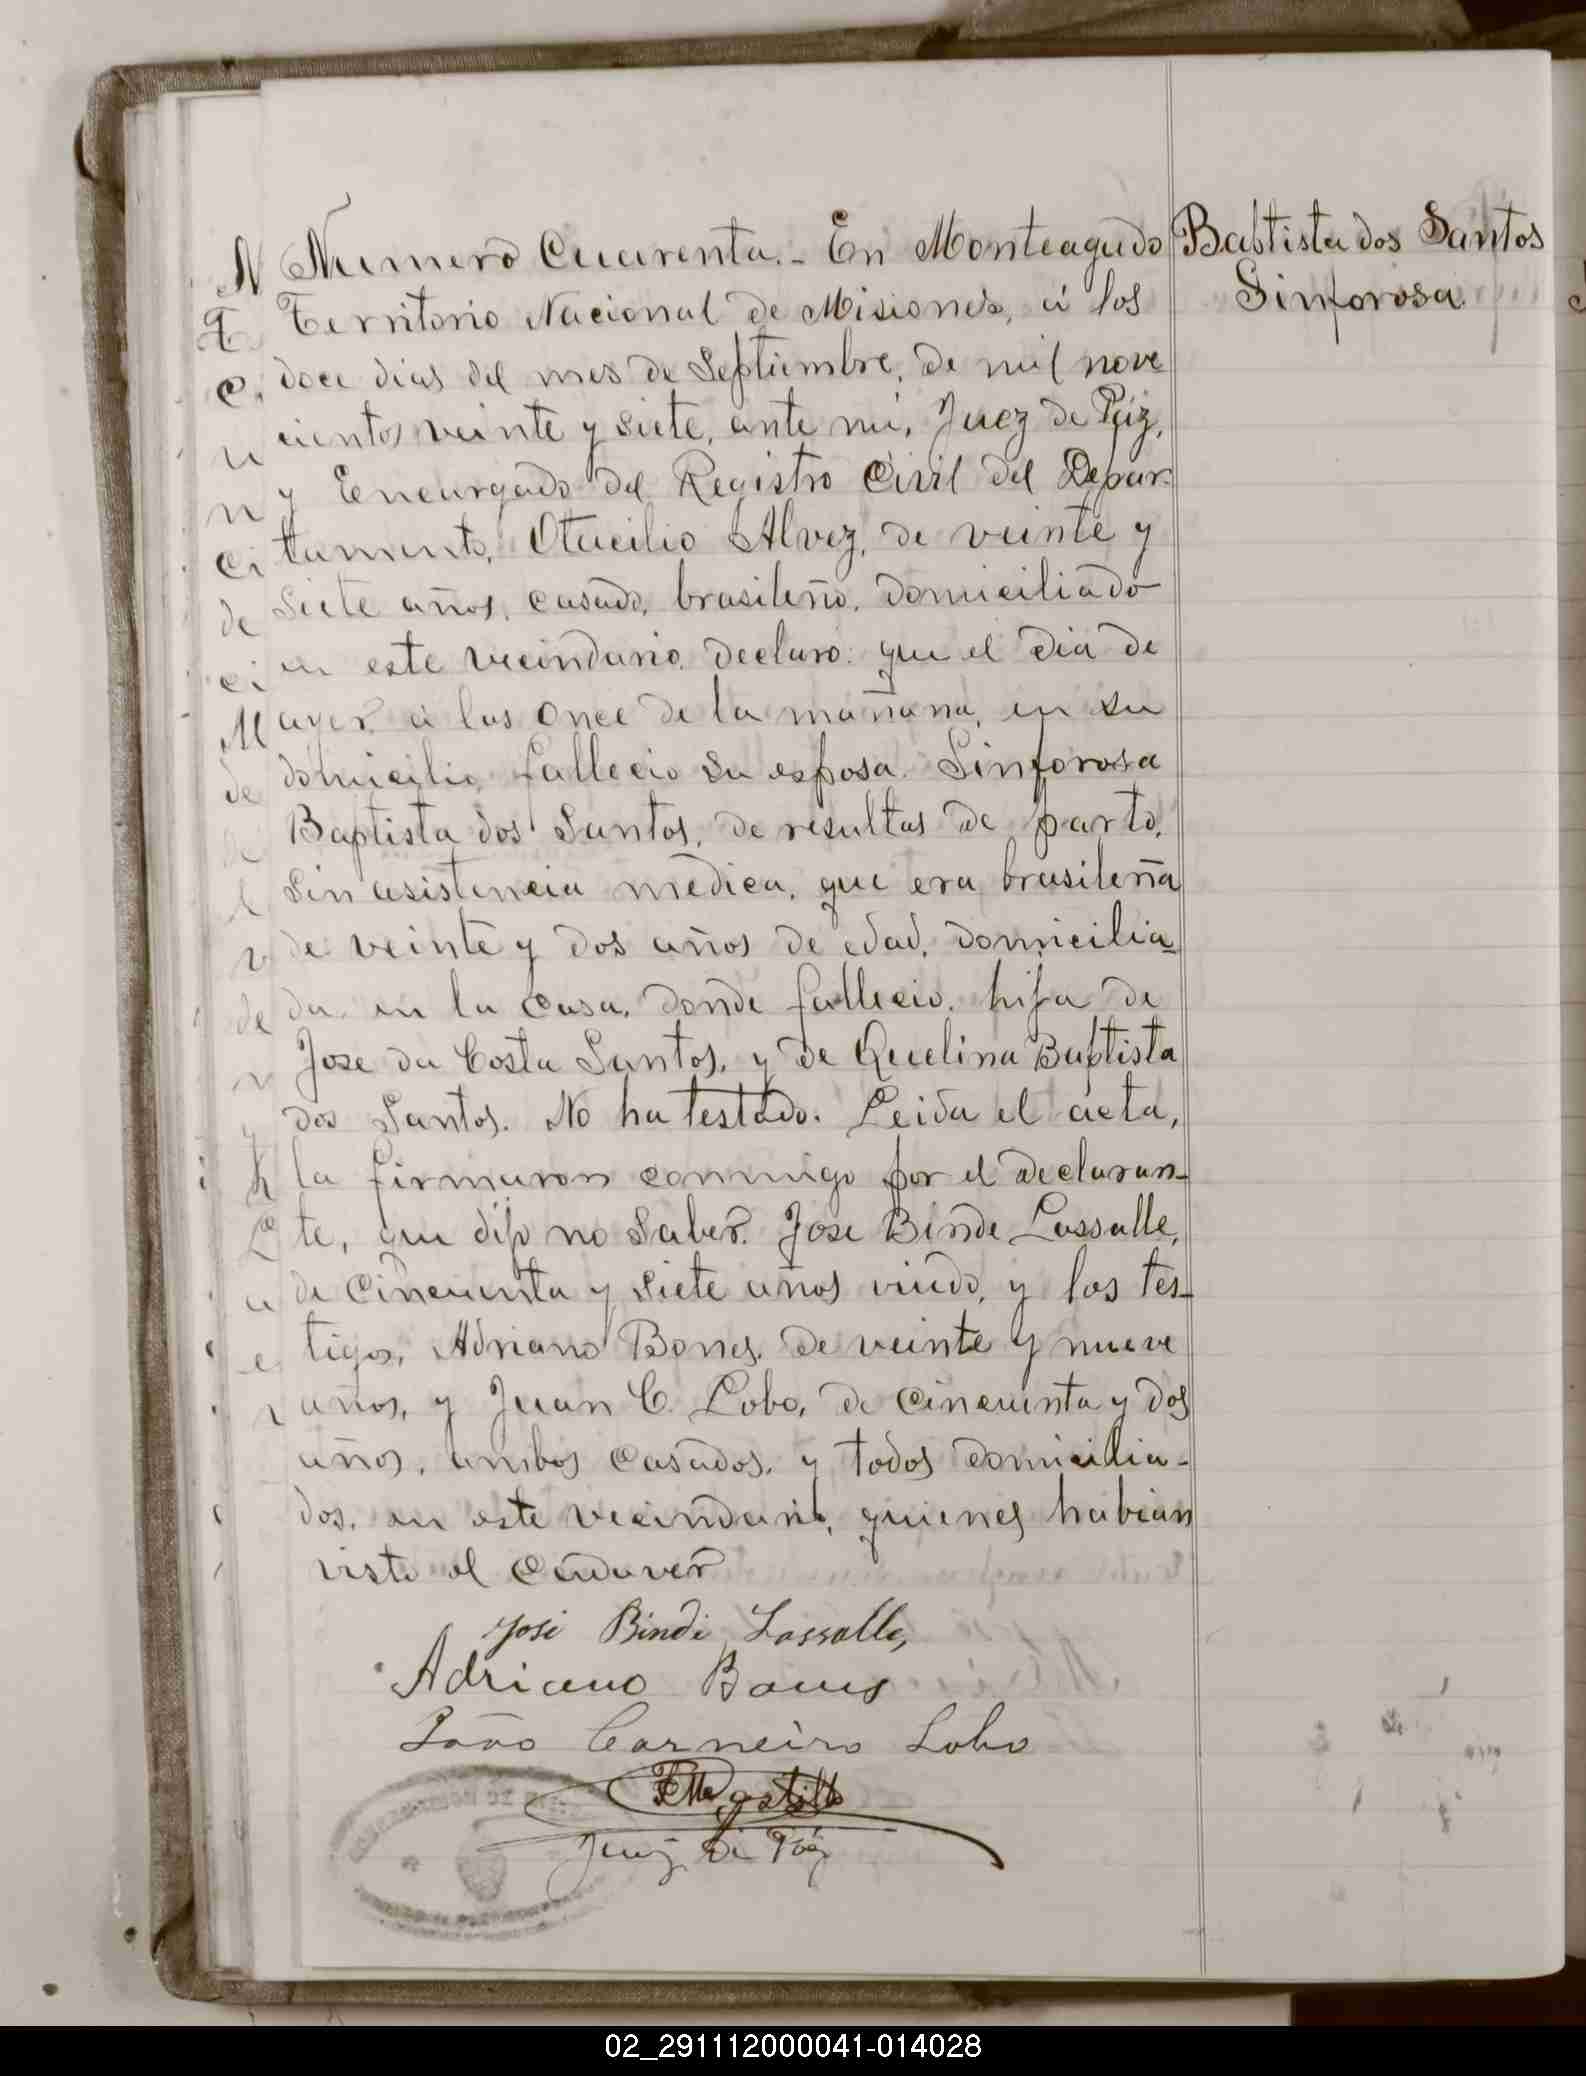 Numero Cuarenta.- En Monteagudo
Baptista dos Santos
Sinforosa
Territorio Nacional de Misiones, á los
doce dias del mes de Septiembre, de mil nove
cientos veinte y siete, ante mí, Juez de Páz,
y Encargado del Registro Civil del Depar-
tamento, Otacilio Alvez, de veinte y
siete años, casado, brasileño, domiciliado
en este vecindario, declaro: que el dia de
ayer á las once de la mañana, en su
domicilio, fallecio su esposa Sinforosa
Baptista dos Santos, de resultas de parto,
sin asistencia médica, que era brasileña
de veinte y dos años de edad, domicilia-
da en la casa, donde fallecio, hija de
Jose da Costa Santos, y de Quelina Baptista
dos Santos. No ha testado. Leida el acta,
la firmaron conmigo por el declaran-
te, que dijo no saber. Jose Binde Lassalle,
de cincuenta y siete años viudo, y los tes-
tigos, Adriano Bones, de veinte y nueve
años, y Juan C. Lobo, de cincuenta y dos
años, ambos casados, y todos domicilia-
dos, en este vecindario, quienes habian
visto el cadaver
José Binde Lassalle,
Adriano Bones
João Carneiro Lobo
Juez de Páz
02_291112000041-014028